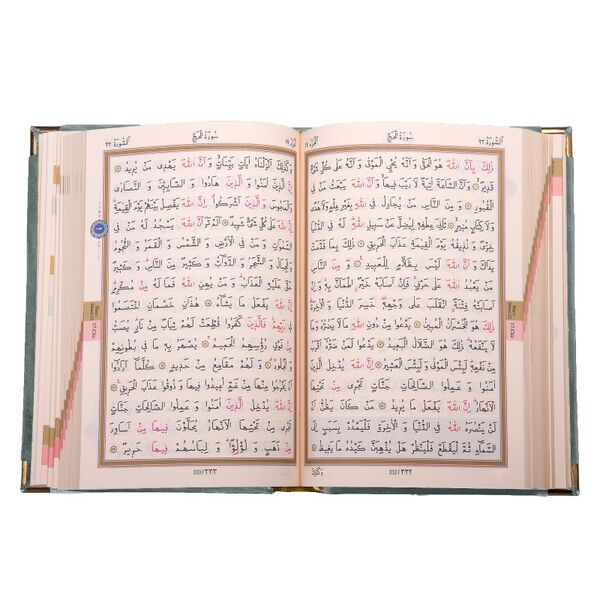 الجزء ١٧ سُورَةُ الْحَجِّ اَلسُّورَةُ ٢٢
ذٰلِكَ بِاَنَّ اللّٰهَ هُوَ الْحَقُّ وَاَنَّهُ يُحْيِ الْمَوْتٰى وَاَنَّهُ عَلٰى كُلِّ شَيْءٍ
قَدِيرٌ وَاَنَّ السَّاعَةَ اٰتِيَةٌ لَا رَيْبَ فِيهَا وَاَنَّ اللّٰهَ يَبْعَثُ مَنْ فِي
الْقُبُورِ وَمِنَ النَّاسِ مَنْ يُجَادِلُ فِي اللّٰهِ بِغَيْرِ عِلْمٍ وَلَا هُدًى
وَلَا كِتَابٍ مُنِيرٍ ثَانِيَ عِطْفِهِ لِيُضِلَّ عَنْ سَبِيلِ اللّٰهِ لَهُ فِي الدُّنْيَا
خِزْيٌ وَنُذِيقُهُ يَوْمَ الْقِيٰمَةِ عَذَابَ الْحَرِيقِ ذٰلِكَ بِمَا قَدَّمَتْ
يَدَاكَ وَاَنَّ اللّٰهَ لَيْسَ بِظَلَّامٍ لِلْعَبِيدِ وَمِنَ النَّاسِ
مَنْ يَعْبُدُ اللّٰهَ عَلٰى حَرْفٍ فَاِنْ اَصَابَهُ خَيْرٌ اطْمَاَنَّ بِهِ وَاِنْ
اَصَابَتْهُ فِتْنَةٌ انْقَلَبَ عَلٰى وَجْهِهِ خَسِرَ الدُّنْيَا وَالْاٰخِرَةَ
ذٰلِكَ هُوَ الْخُسْرَانُ الْمُبِينُ يَدْعُوا مِنْ دُونِ اللّٰهِ مَا لَا يَضُرُّهُ وَمَا
لَا يَنْفَعُهُ ذٰلِكَ هُوَ الضَّلَالُ الْبَعِيدُ يَدْعُوا لَمَنْ ضَرُّهُ اَقْرَبُ
مِنْ نَفْعِهِ لَبِئْسَ الْمَوْلٰى وَلَبِئْسَ الْعَشِيرُ اِنَّ اللّٰهَ يُدْخِلُ الَّذِينَ
اٰمَنُوا وَعَمِلُوا الصَّالِحَاتِ جَنَّاتٍ تَجْرِي مِنْ تَحْتِهَا
الْاَنْهَارُ اِنَّ اللّٰهَ يَفْعَلُ مَا يُرِيدُ مَنْ كَانَ يَظُنُّ اَنْ
لَنْ يَنْصُرَهُ اللّٰهُ فِي الدُّنْيَا وَالْاٰخِرَةِ فَلْيَمْدُدْ بِسَبَبٍ اِلَى
السَّمَاءِ ثُمَّ لْيَقْطَعْ فَلْيَنْظُرْ هَلْ يُذْهِبَنَّ كَيْدُهُ مَا يَغِيظُ
332/٣٣٢
17.Cüz
اَلسُّورَةُ ٢٢ سُورَةُ الْحَجِّ الجزء ١٧
وَكَذٰلِكَ اَنْزَلْنَاهُ اٰيَاتٍ بَيِّنَاتٍ وَاَنَّ اللّٰهَ يَهْدِي مَنْ يُرِيدُ
اِنَّ الَّذِينَ اٰمَنُوا وَالَّذِينَ هَادُوا وَالصَّابِئِينَ وَالنَّصَارٰى
وَالْمَجُوسَ وَالَّذِينَ اَشْرَكُوا اِنَّ اللّٰهَ يَفْصِلُ بَيْنَهُمْ يَوْمَ الْقِيٰمَةِ
اِنَّ اللّٰهَ عَلٰى كُلِّ شَيْءٍ شَهِيدٌ اَلَمْ تَرَ اَنَّ اللّٰهَ يَسْجُدُ لَهُ مَنْ فِي
السَّمٰوَاتِ وَمَنْ فِي الْاَرْضِ وَالشَّمْسُ وَالْقَمَرُ وَالنُّجُومُ
وَالْجِبَالُ وَالشَّجَرُ وَالدَّوَابُّ وَكَثِيرٌ مِنَ النَّاسِ وَكَثِيرٌ
حَقَّ عَلَيْهِ الْعَذَابُ وَمَنْ يُهِنِ اللّٰهُ فَمَا لَهُ مِنْ مُكْرِمٍ
اِنَّ اللّٰهَ يَفْعَلُ مَا يَشَاءُ هٰذَانِ خَصْمَانِ اخْتَصَمُوا
فِي رَبِّهِمْ فَالَّذِينَ كَفَرُوا قُطِّعَتْ لَهُمْ ثِيَابٌ مِنْ نَارٍ يُصَبُّ
مِنْ فَوْقِ رُؤُسِهِمُ الْحَمِيمُ يُصْهَرُ بِهِ مَا فِي بُطُونِهِمْ
وَالْجُلُودُ وَلَهُمْ مَقَامِعُ مِنْ حَدِيدٍ كُلَّمَا اَرَادُوا
اَنْ يَخْرُجُوا مِنْهَا مِنْ غَمٍّ اُعِيدُوا فِيهَا وَذُوقُوا عَذَابَ الْحَرِيقِ
اِنَّ اللّٰهَ يُدْخِلُ الَّذِينَ اٰمَنُوا وَعَمِلُوا الصَّالِحَاتِ جَنَّاتٍ
تَجْرِي مِنْ تَحْتِهَا الْاَنْهَارُ يُحَلَّوْنَ فِيهَا مِنْ اَسَاوِرَ
مِنْ ذَهَبٍ وَلُؤْلُؤًا وَلِبَاسُهُمْ فِيهَا حَرِيرٌ
333/٣٣٣
17.Cüz